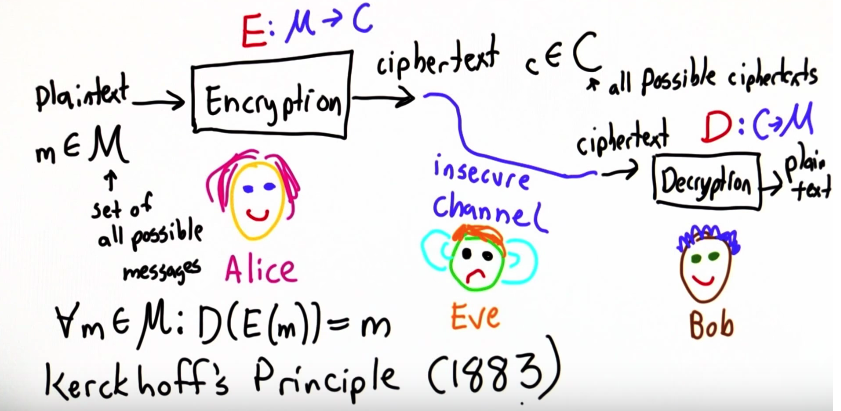 E: M → C
plaintext → Encryption → ciphertext c ∈ C
all possible ciphertexts
m ∈ M
set of
all possible
messages
Alice
insecure
channel
Eve
ciphertext → Decryption → plain
text
D: C→M
Bob
∀m ∈ M: D(E(m)) = m
Kerckhoff's Principle (1883)